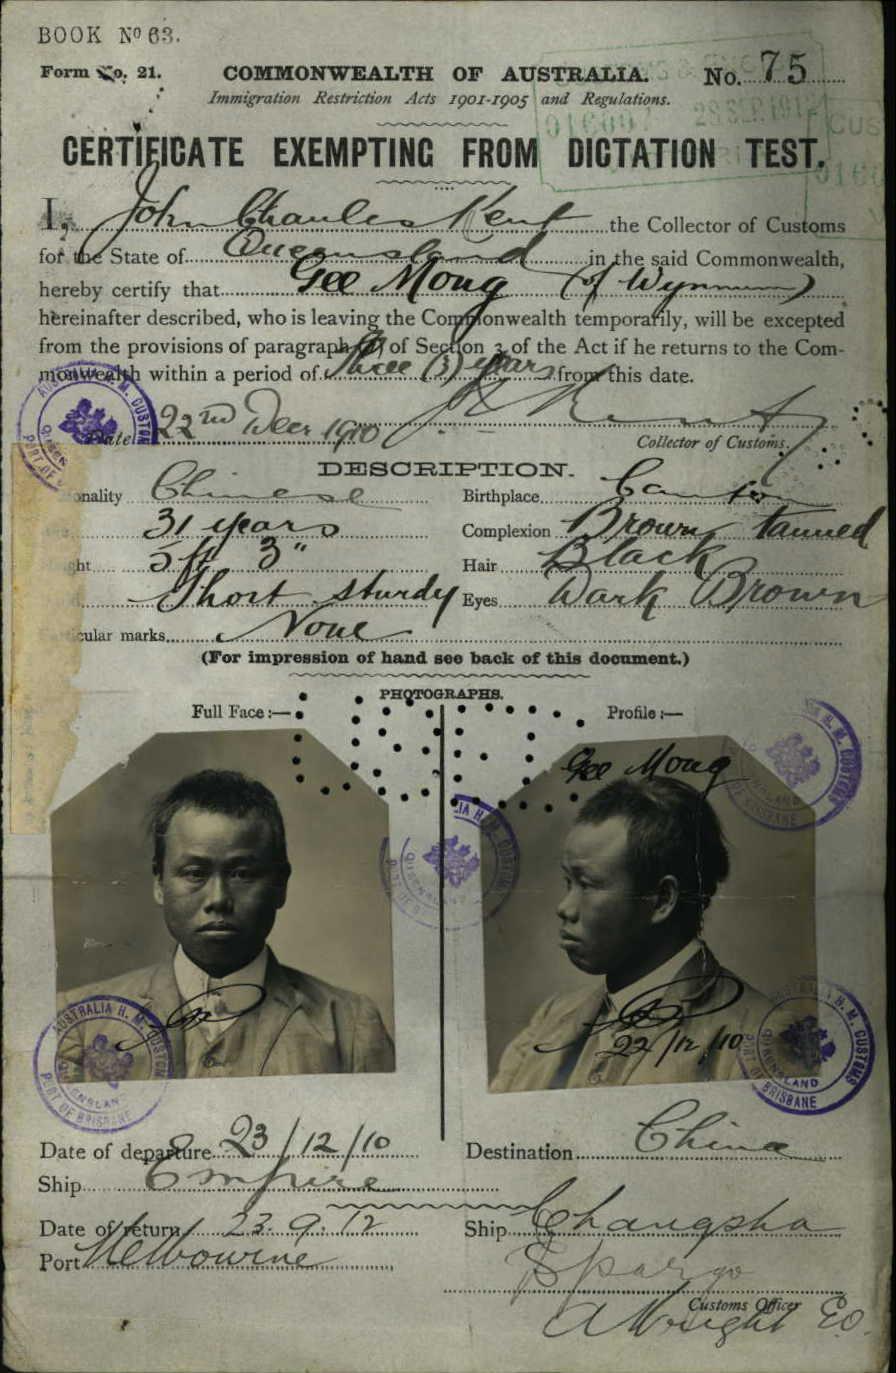 BOOK Nº 63.
Form No. 21. COMMONWEALTH OF AUSTRALIA. No. 75
Immigration Restriction Acts 1901-1905 and Regulations.
CERTIFICATE EXEMPTING FROM DICTATION TEST.
I, John Charles Kent the Collector of Customs
for the State of Queensland in the said Commonwealth,
hereby certify that Gee Mong (of Wynnum)
hereinafter described, who is leaving the Commonwealth temporarily, will be excepted
from the provisions of paragraph (a) of Section 3 of the Act if he returns to the Com-
monwealth within a period of Three (3) years from this date.
Date 22nd Decr 1910
Collector of Customs.
DESCRIPTION.
onality Chinese Birthplace Canton
31 years Complexion Brown, tanned
ght 5 ft 3" Hair Black
Short sturdy Eyes Dark Brown
cular marks None
(For impression of hand see back of this document.)
PHOTOGRAPHS.
Full Face :— Profile :—
Gee Mong
22/12/10
AUSTRALIA H. M. CUSTOMS
QUEENSLAND
PORT OF BRISBANE
Date of departure 23/12/10 Destination China
Ship Empire
Date of return 23.9.12 Ship Changsha
Port Melbourne
Customs Officer
A Wright E.O.